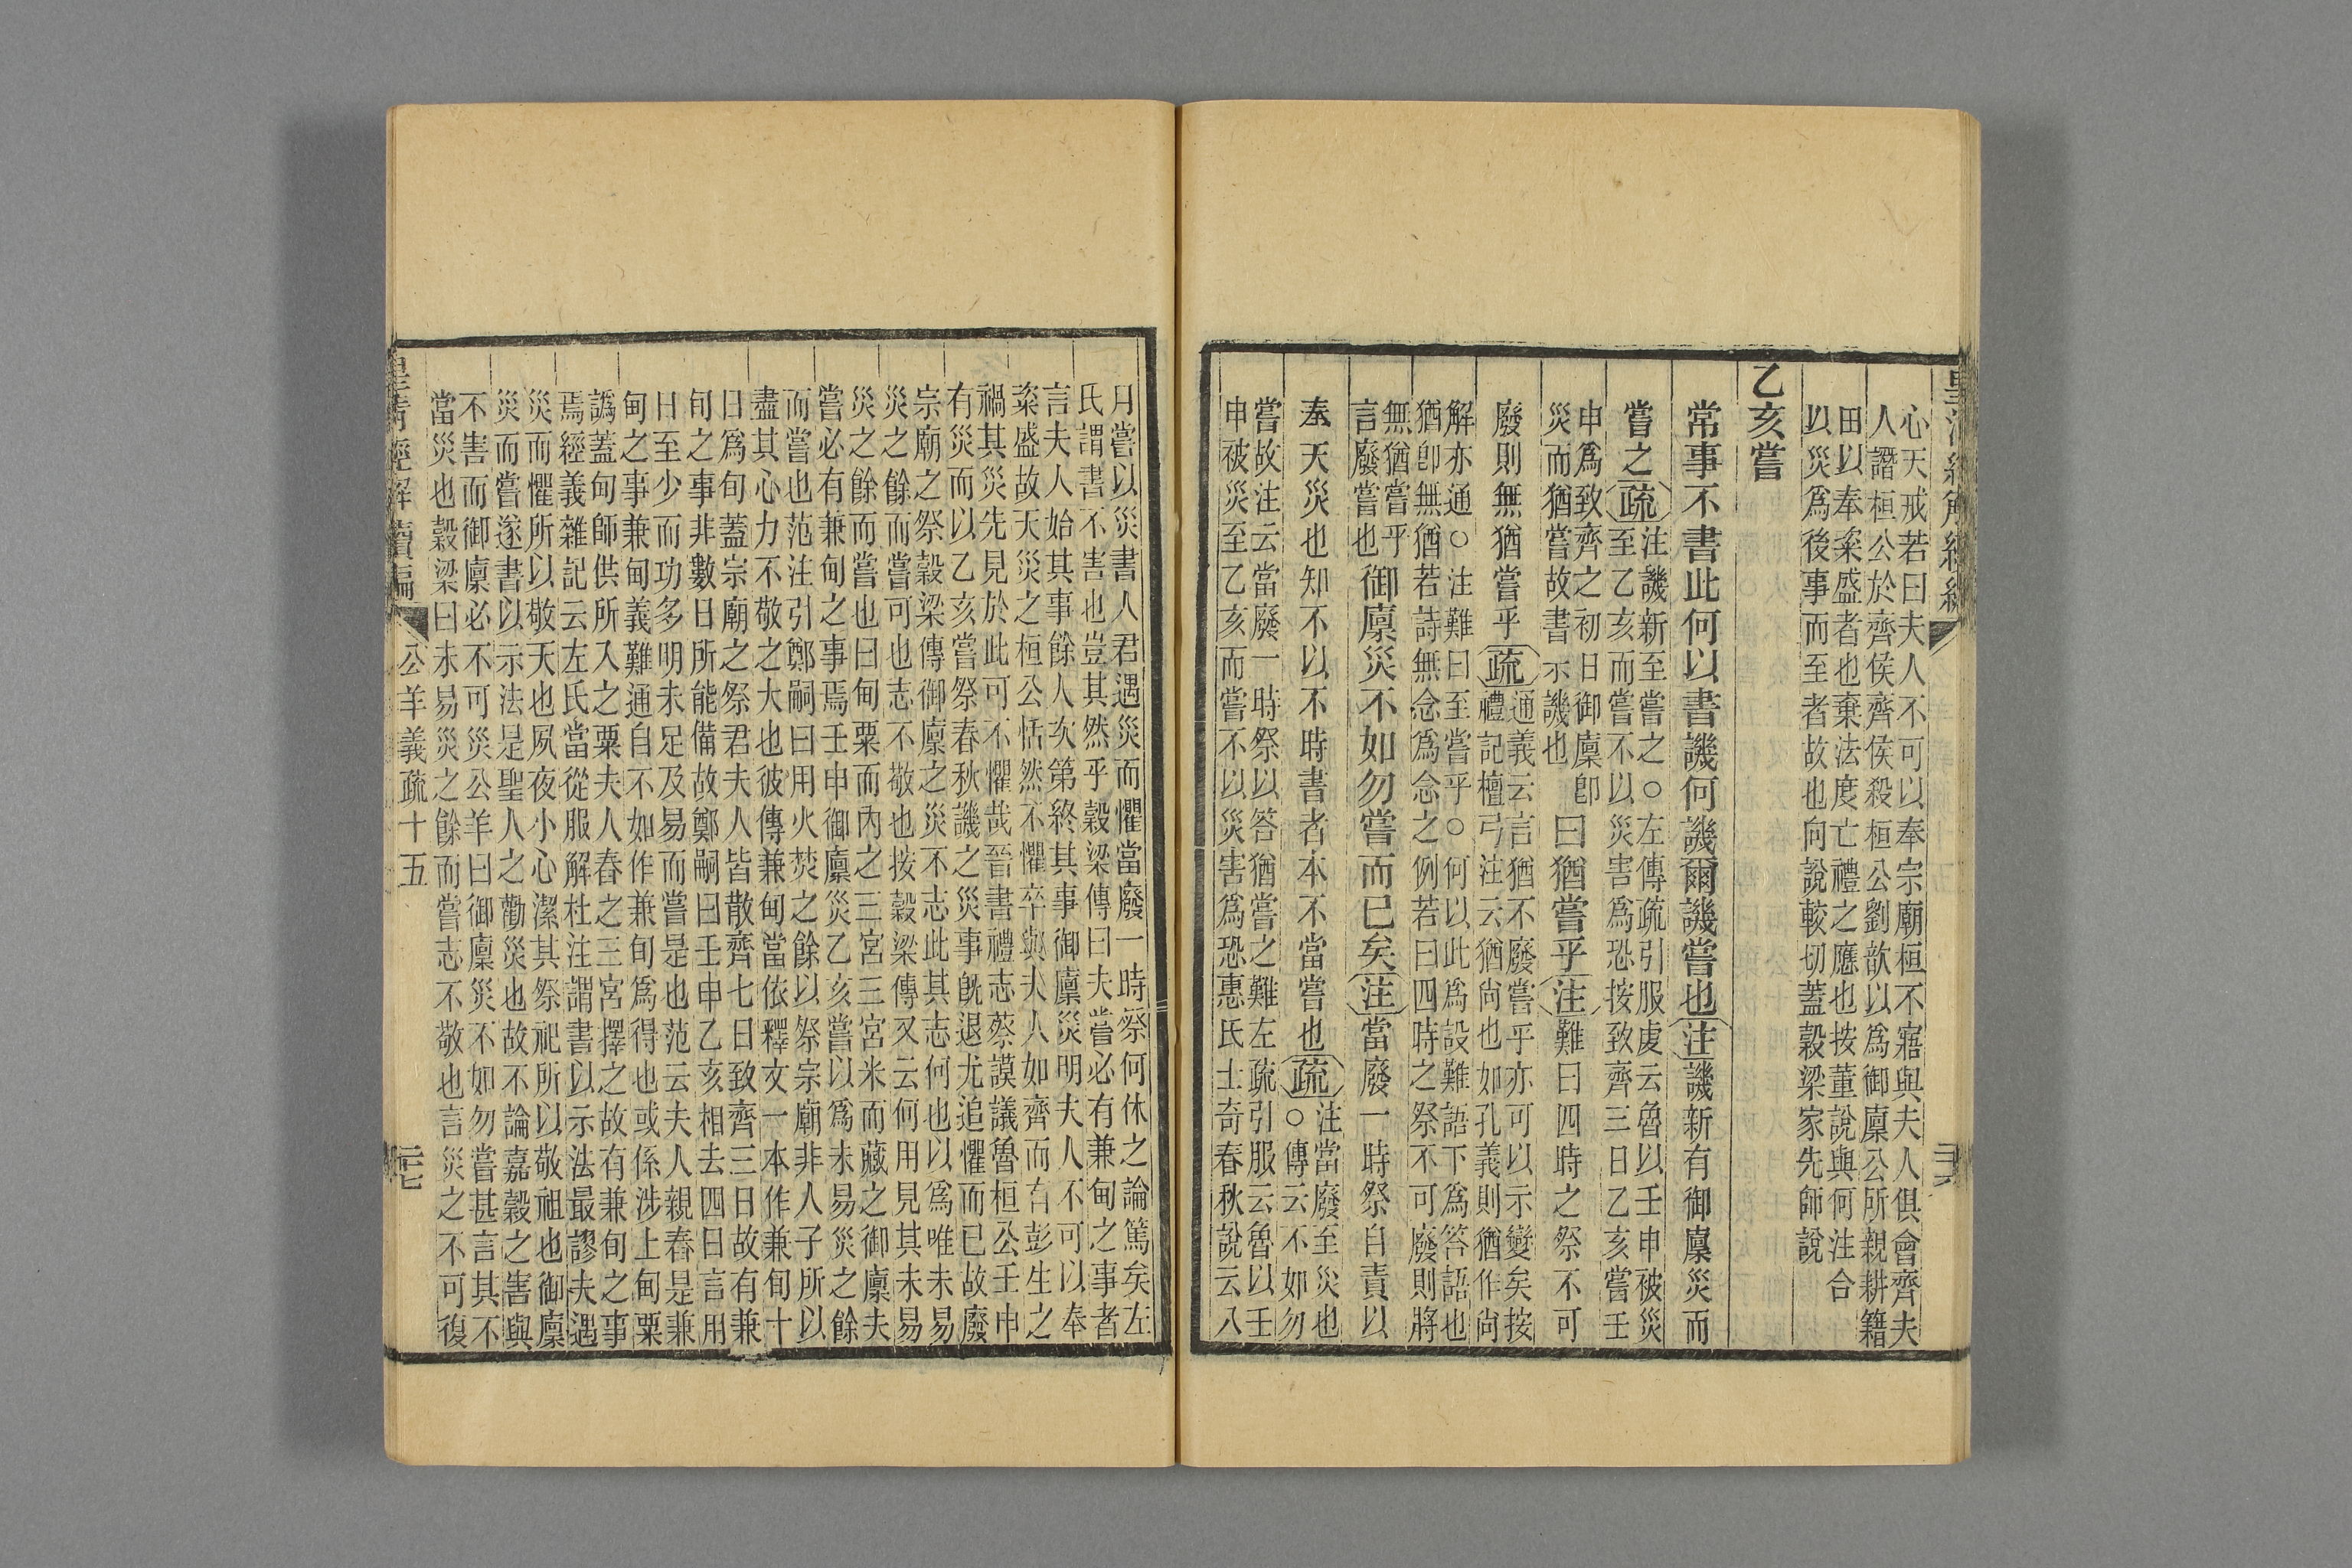 皇清經解續編
心天戒若曰夫人不可以奉宗廟桓不寤與夫人俱會齊夫
人譖桓公於齊侯齊侯殺桓公劉歆以為御廩公所親耕籍
田以奉粢盛者也棄法度亡禮之應也按董說與何注合
以災為後事而至者故也向說較切蓋穀梁家先師說
乙亥嘗
常事不書此何以書譏何譏爾譏嘗也注譏新有御廩災而
嘗之疏
注譏新至嘗之○左傳疏引服虔云魯以壬申被災
至乙亥而嘗不以災害為恐按致齊三日乙亥嘗壬
申為致齊之初日御廩卽
災而猶嘗故書示譏也
曰猶嘗乎注難曰四時之祭不可
廢則無猶嘗乎疏
通義云言猶不廢嘗乎亦可以示變矣按
禮記檀弓注云猶尚也如孔義則猶作尚
解亦通○注難曰至嘗乎○何以此為設難語下為答語也
猶卽無猶猶若詩無念為念之例若曰四時之祭不可廢則將
無猶嘗乎
言廢嘗也
御廩災不如勿嘗而已矣注當廢一時祭自責以
奉天災也知不以不時書者本不當嘗也疏
注當廢至災也
○傳云不如勿
嘗故注云當廢一時祭以答猶嘗之難左疏引服云魯以壬
申被災至乙亥而嘗不以災害為恐惠氏士奇春秋說云八
月嘗以災書人君遇災而懼當廢一時祭何休之論篤矣左
氏謂書不害也豈其然乎穀梁傳曰夫嘗必有兼甸之事者
言夫人始其事餘人次第終其事御廩災明夫人不可以奉
粢盛故天災之桓公恬然不懼卒與夫人如齊而有彭生之
禍其災先見於此可不懼哉晉書禮志蔡謨議魯桓公壬申
有災而以乙亥嘗祭春秋譏之災事旣退尤追懼而已故廢
宗廟之祭穀梁傳御廩之災不志此其志何也以為唯未易
災之餘而嘗可也志不敬也按穀梁傳又云何用見其未易
災之餘而嘗也曰甸粟而內之三宮三宮米而藏之御廩夫
嘗必有兼甸之事焉壬申御廩災乙亥嘗以為未易災之餘
而嘗也范注引鄭嗣曰用火焚之餘以祭宗廟非人子所以
盡其心力不敬之大也彼傳兼甸當依釋文一本作兼旬十
日為旬蓋宗廟之祭君夫人皆散齊七日致齊三日故有兼
旬之事非數日所能備故鄭嗣曰壬申乙亥相去四日言用
日至少而功多明未足及易而嘗是也范云夫人親舂是兼
甸之事兼甸義難通自不如作兼旬為得也或係涉上甸粟
譌蓋甸師供所入之粟夫人舂之三宮擇之故有兼旬之事
焉經義雜記云左氏當從服解杜注謂書以示法最謬夫遇
災而懼所以敬天也夙夜小心潔其祭祀所以敬祖也御廩
災而嘗遂書以示法是聖人之勸災也故不論嘉穀之害與
不害而御廩必不可災公羊曰御廩災不如勿嘗甚言其不
當災也穀梁曰未易災之餘而嘗志不敬也言災之不可復
皇清經解續編 公羊義疏十五 二十七